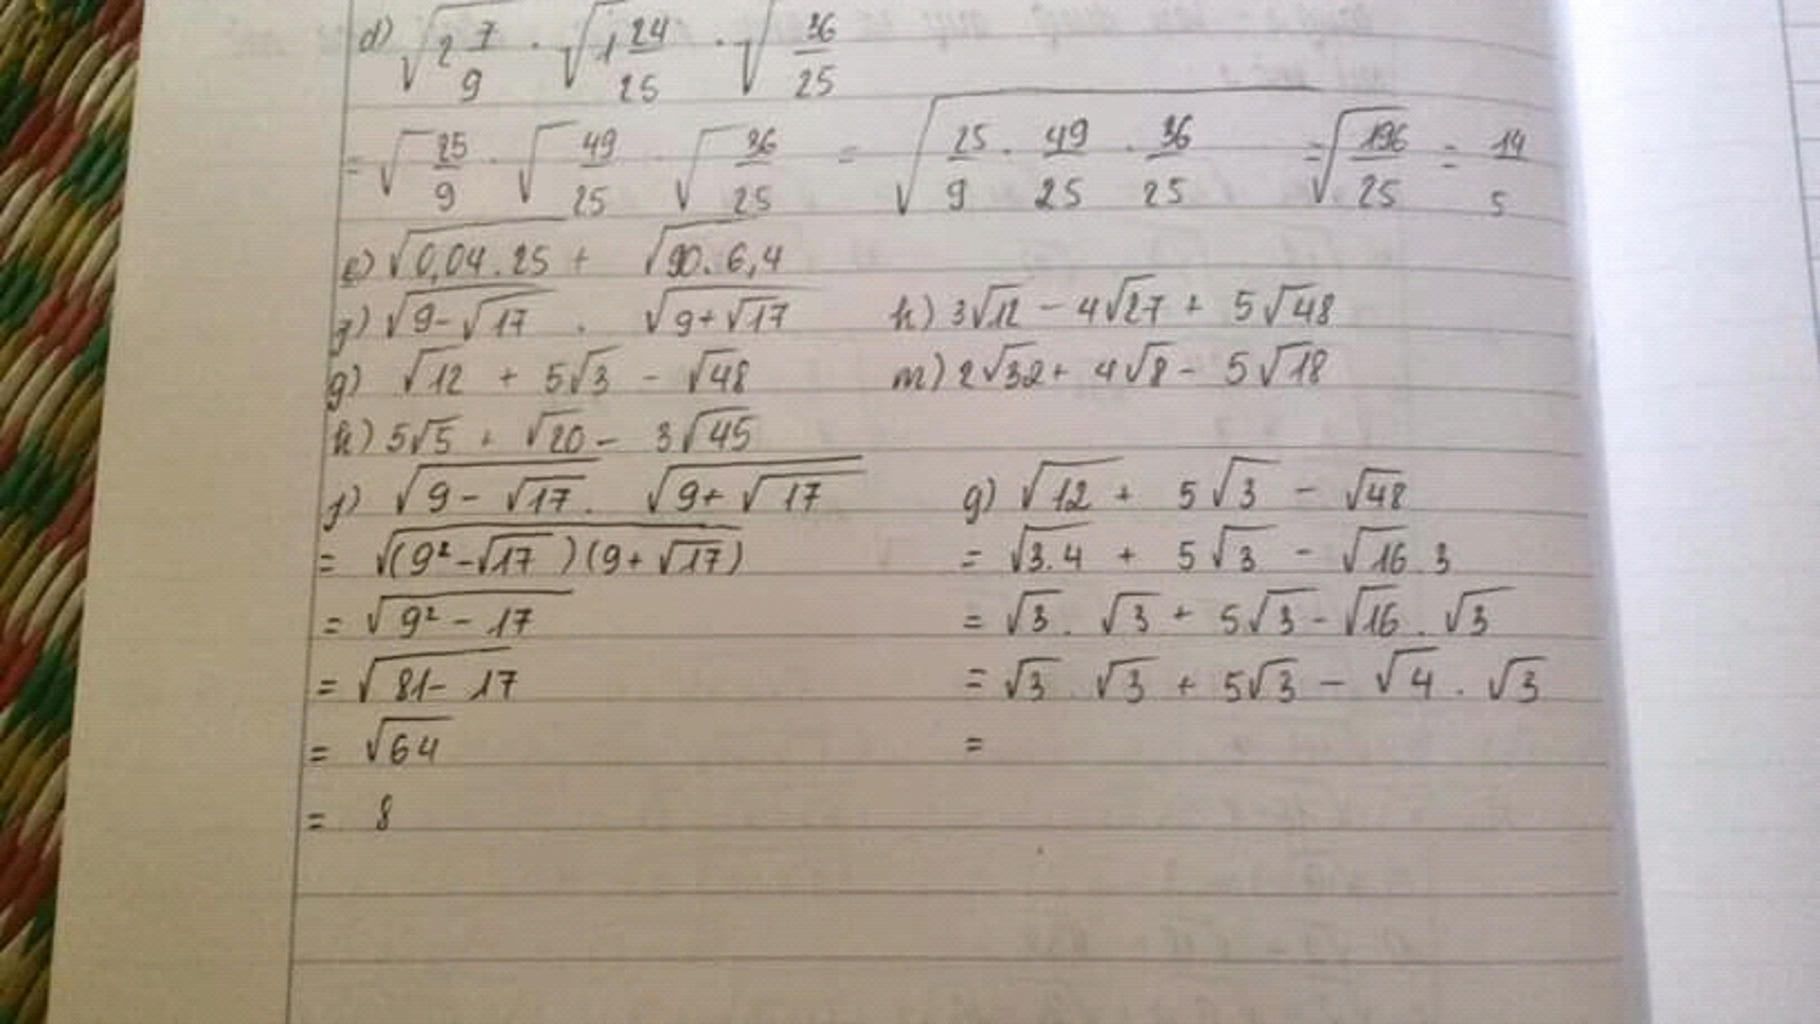 d) √(2 7/9) . √(1 24/25) . √(36/25)
= √(25/9) . √(49/25) . √(36/25) = √(25/9 . 49/25 . 36/25) = √(196/25) = 14/5
e) √(0,04.25) + √(90.6,4)
f) √(9-√17) . √(9+√17) h) 3√12 - 4√27 + 5√48
g) √12 + 5√3 - √48 m) 2√32 + 4√8 - 5√18
k) 5√5 + √20 - 3√45
f) √(9-√17) . √(9+√17) g) √12 + 5√3 - √48
= √((9²-√17)(9+√17)) = √(3.4) + 5√3 - √16.3
= √(9²-17) = √3 . √3 + 5√3 - √16 . √3
= √(81-17) = √3 √3 + 5√3 - √4 . √3
= √64 =
= 8